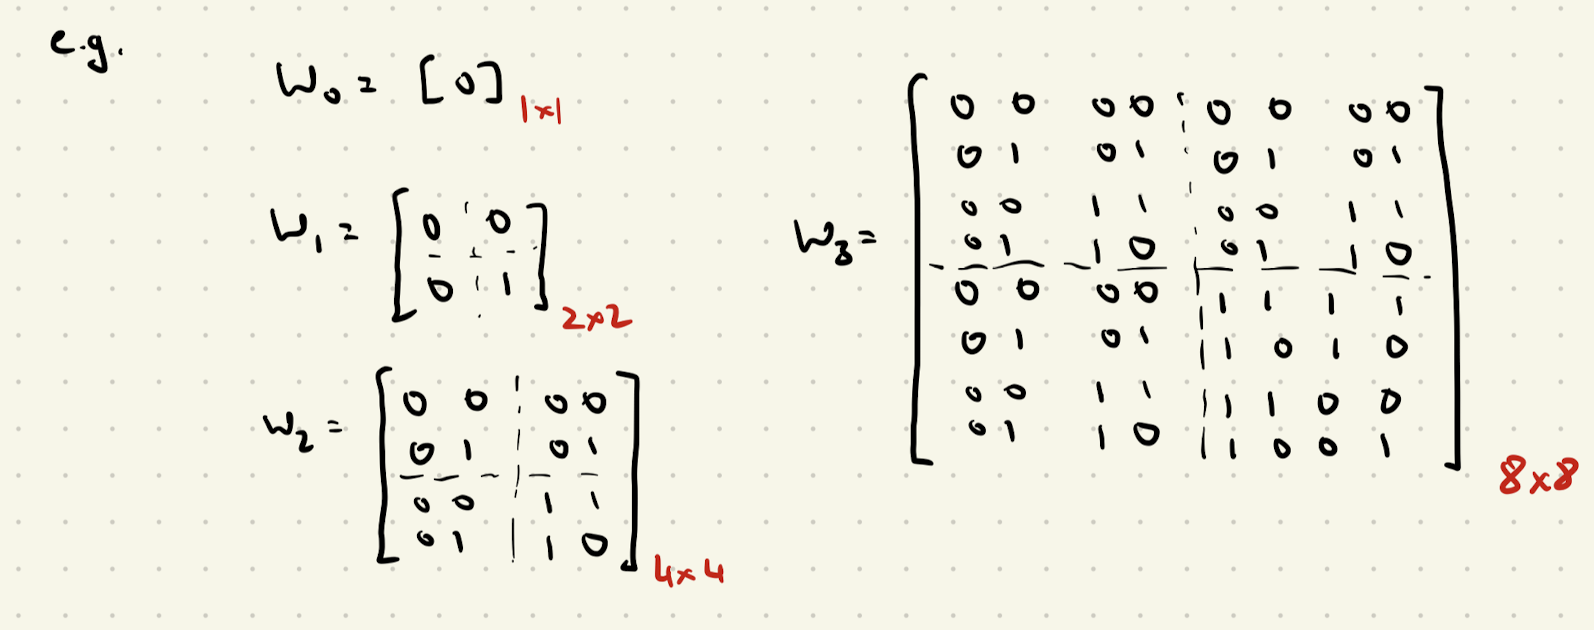 e.g.
W₀ = [0] 1×1
W₁ =
0 0
0 1
2×2
W₂ =
0 0 0 0
0 1 0 1
0 0 1 1
0 1 1 0
4×4
W₃ =
0 0 0 0 0 0 0 0
0 1 0 1 0 1 0 1
0 0 1 1 0 0 1 1
0 1 1 0 0 1 1 0
0 0 0 0 1 1 1 1
0 1 0 1 1 0 1 0
0 0 1 1 1 1 0 0
0 1 1 0 1 0 0 1
8×8